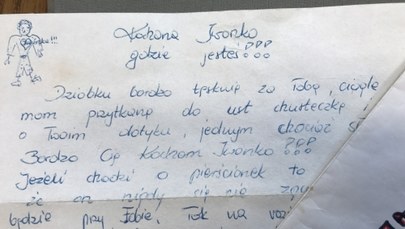 Kochana Iwonko
gdzie jesteś???
Dziobku bardzo tęsknię za Tobą, ciągle
mam przytkaną do ust chusteczkę i
o Twoim dotyku, jednym
Bardzo Cię Kocham Iwonko ???
Jeżeli chodzi o pierścionek to
że nigdy się
będzie przy Tobie, Tak na